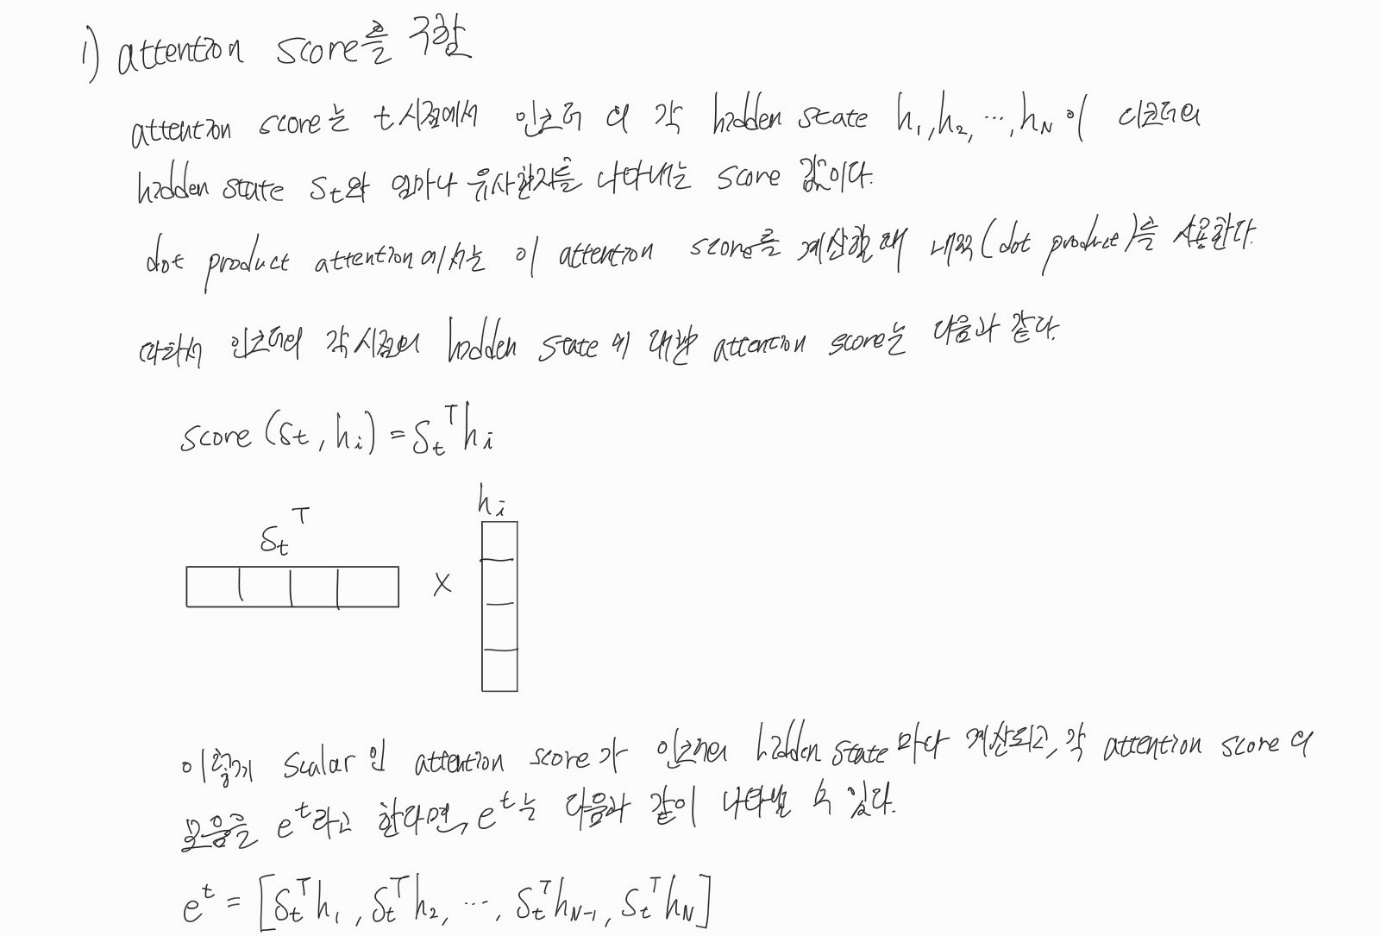 1) attention score를 구함
attention score는 t시점에서 인코더의 각 hidden state h₁, h₂, ⋯, h_N이 디코더의
hidden state S_t와 얼마나 유사한지를 나타내는 score 값이다.
dot product attention에서는 이 attention score를 계산할 때 내적(dot product)를 사용한다.
따라서 인코더의 각 시점의 hidden state에 대한 attention score는 다음과 같다.
score(S_t, h_i) = S_t^T h_i
h_i
S_t^T
×
이렇게 scalar인 attention score가 인코더의 hidden state마다 계산되고, 각 attention score의
모음을 e^t라고 한다면, e^t는 다음과 같이 나타낼 수 있다.
e^t = [S_t^T h₁, S_t^T h₂, ⋯, S_t^T h_{N-1}, S_t^T h_N]